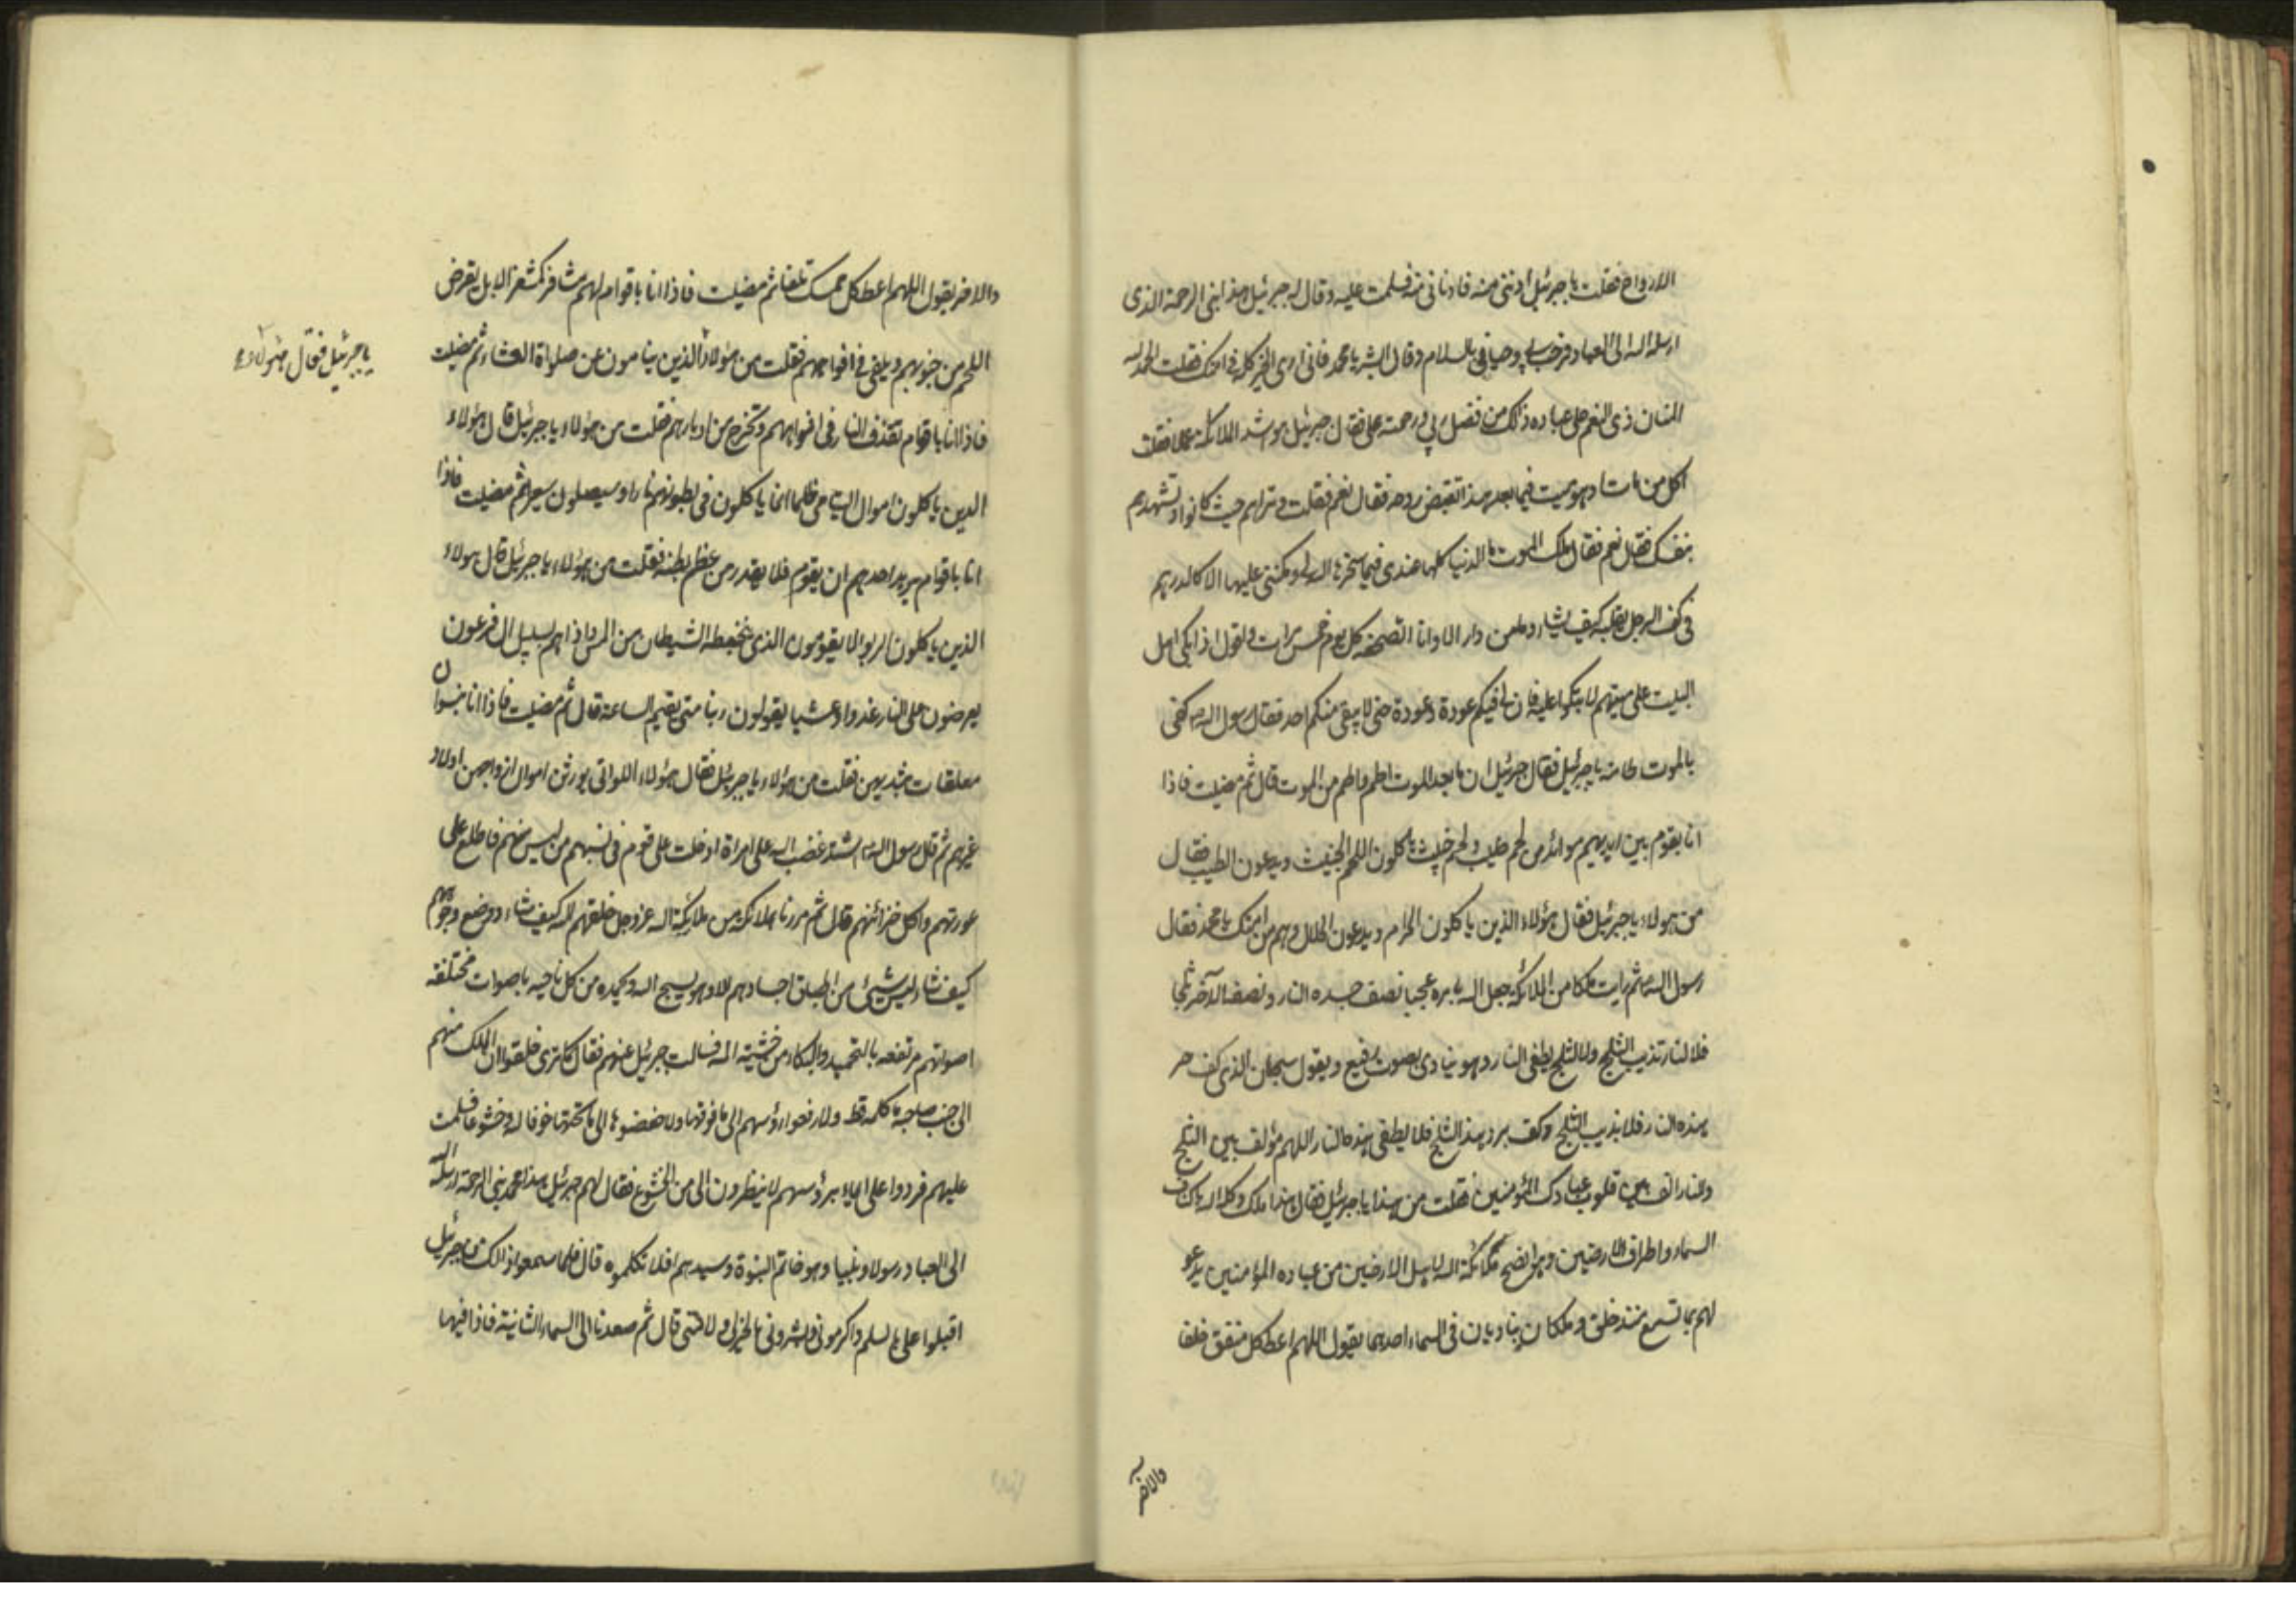 الارواح فقلت يا جبرئيل أدنني منه فادناني منه فسلمت عليه وقال له جبرئيل هذا نبي الرحمة الذي
ارسله الله الى العباد فرحب بي وحياني بالسلام وقال ابشر يا محمد فاني ارى الخير كله في امتك فقلت الحمد لله
المنان ذي النعم على عباده ذلك من فضل ربي ورحمته علي فقال جبرئيل هو اشد الملائكة عملا فقلت
اكل من مات او هو ميت فيما بعد هذا تقبض روحه فقال نعم فقلت وتراهم حيث كانوا وتشهدهم
بنفسك فقال نعم فقال ملك الموت ما الدنيا كلها عندي فيما سخرها الله لي ومكنني عليها الا كالدرهم
في كف الرجل يقلبه كيف يشاء وما من دار الا وانا اتصفحه كل يوم خمس مرات واقول اذا بكى اهل
البيت على ميتهم لا تبكوا عليه فان لي فيكم عودة وعودة حتى لا يبقى منكم احد فقال رسول الله ص كفى
بالموت طامة يا جبرئيل فقال جبرئيل ان ما بعد الموت اطم واطم من الموت قال ثم مضيت فاذا
انا بقوم بين ايديهم موائد من لحم طيب ولحم خبيث ياكلون اللحم الخبيث ويدعون الطيب فقال
من هولاء يا جبرئيل فقال هؤلاء الذين ياكلون الحرام ويدعون الحلال وهم من امتك يا محمد فقال
رسول الله ص ثم رايت ملكا من الملائكة جعل الله بامره عجبا نصف جسده النار ونصف الآخر ثلجا
فلا النار تذيب الثلج ولا الثلج يطفي النار وهو ينادي بصوت رفيع ويقول سبحان الذي كف حر
هذه النار فلا يذيب الثلج وكف برد هذا الثلج فلا يطفي هذه النار اللهم مؤلف بين الثلج
والنار الف بين قلوب عبادك المؤمنين فقلت من هذا يا جبرئيل فقال هذا ملك وكله الله باكناف
السماء واطراف الارضين وهو انصح ملائكة الله لاهل الارضين من عباده المؤمنين يدعو
لهم بما تسمع منذ خلق وملكان يناديان في السماء احدهما يقول اللهم اعط كل منفق خلفا
والاخر
والاخر يقول اللهم اعط كل ممسك تلفا ثم مضيت فاذا انا باقوام لهم مشافر كمشفر الابل يقرض
اللحم من جنوبهم ويلقى في افواههم فقلت من هؤلاء الذين ينامون عن صلواة العشاء ثم مضيت
يا جبرئيل فقال هولاء
فاذا انا باقوام تقذف النار في افواههم وتخرج من ادبارهم فقلت من هؤلاء يا جبرئيل قال هؤلاء
الذين ياكلون اموال اليتامى ظلما انما ياكلون في بطونهم نارا وسيصلون سعيرا ثم مضيت فاذا
انا باقوام يريد احدهم ان يقوم فلا يقدر من عظم بطنه فقلت من هؤلاء يا جبرئيل قال هولاء
الذين ياكلون الربوا لا يقومون الذي يتخبطه الشيطان من المس واذا هم بسبيل ال فرعون
يعرضون على النار غدوا وعشيا يقولون ربنا متى تقيم الساعة قال ثم مضيت فاذا انا بنسوان
معلقات بثديهن فقلت من هؤلاء يا جبرئيل فقال هؤلاء اللواتي يورثن اموال ازواجهن اولاد
غيرهم ثم قال رسول الله ص اشتد غضب الله على امراة ادخلت على قوم في نسبهم من ليس منهم فاطلع على
عورتهم واكل خزائنهم قال ثم مررنا بملائكة من ملائكة الله عز وجل خلقهم الله كيف شاء ووضع وجوههم
كيف شاء ليس شيئ من اطباق اجسادهم الا وهو يسبح الله ويحمده من كل ناحيه باصوات مختلفه
اصواتهم مرتفعه بالتحميد والبكاء من خشية الله فسالت جبرئيل عنهم فقال كما ترى خلقوا ان الملك منهم
الى جنب صاحبه ما كلمه قط ولا رفعوا رؤسهم الى ما فوقها ولا خفضوها الى ما تحتها خوفا لله وخشوعا فسلمت
عليهم فردوا علي ايماء برؤسهم لا ينظرون الي من الخشوع فقال لهم جبرئيل هذا محمد نبي الرحمة ارسله الله
الى العباد رسولا ونبيا وهو خاتم النبوة وسيدهم افلا تكلموه قال فلما سمعوا ذالك من جبرئيل
اقبلوا علي بالسلم واكرموني وبشروني بالخير لي ولامتي قال ثم صعدنا الى السماء الثانية فاذا فيها